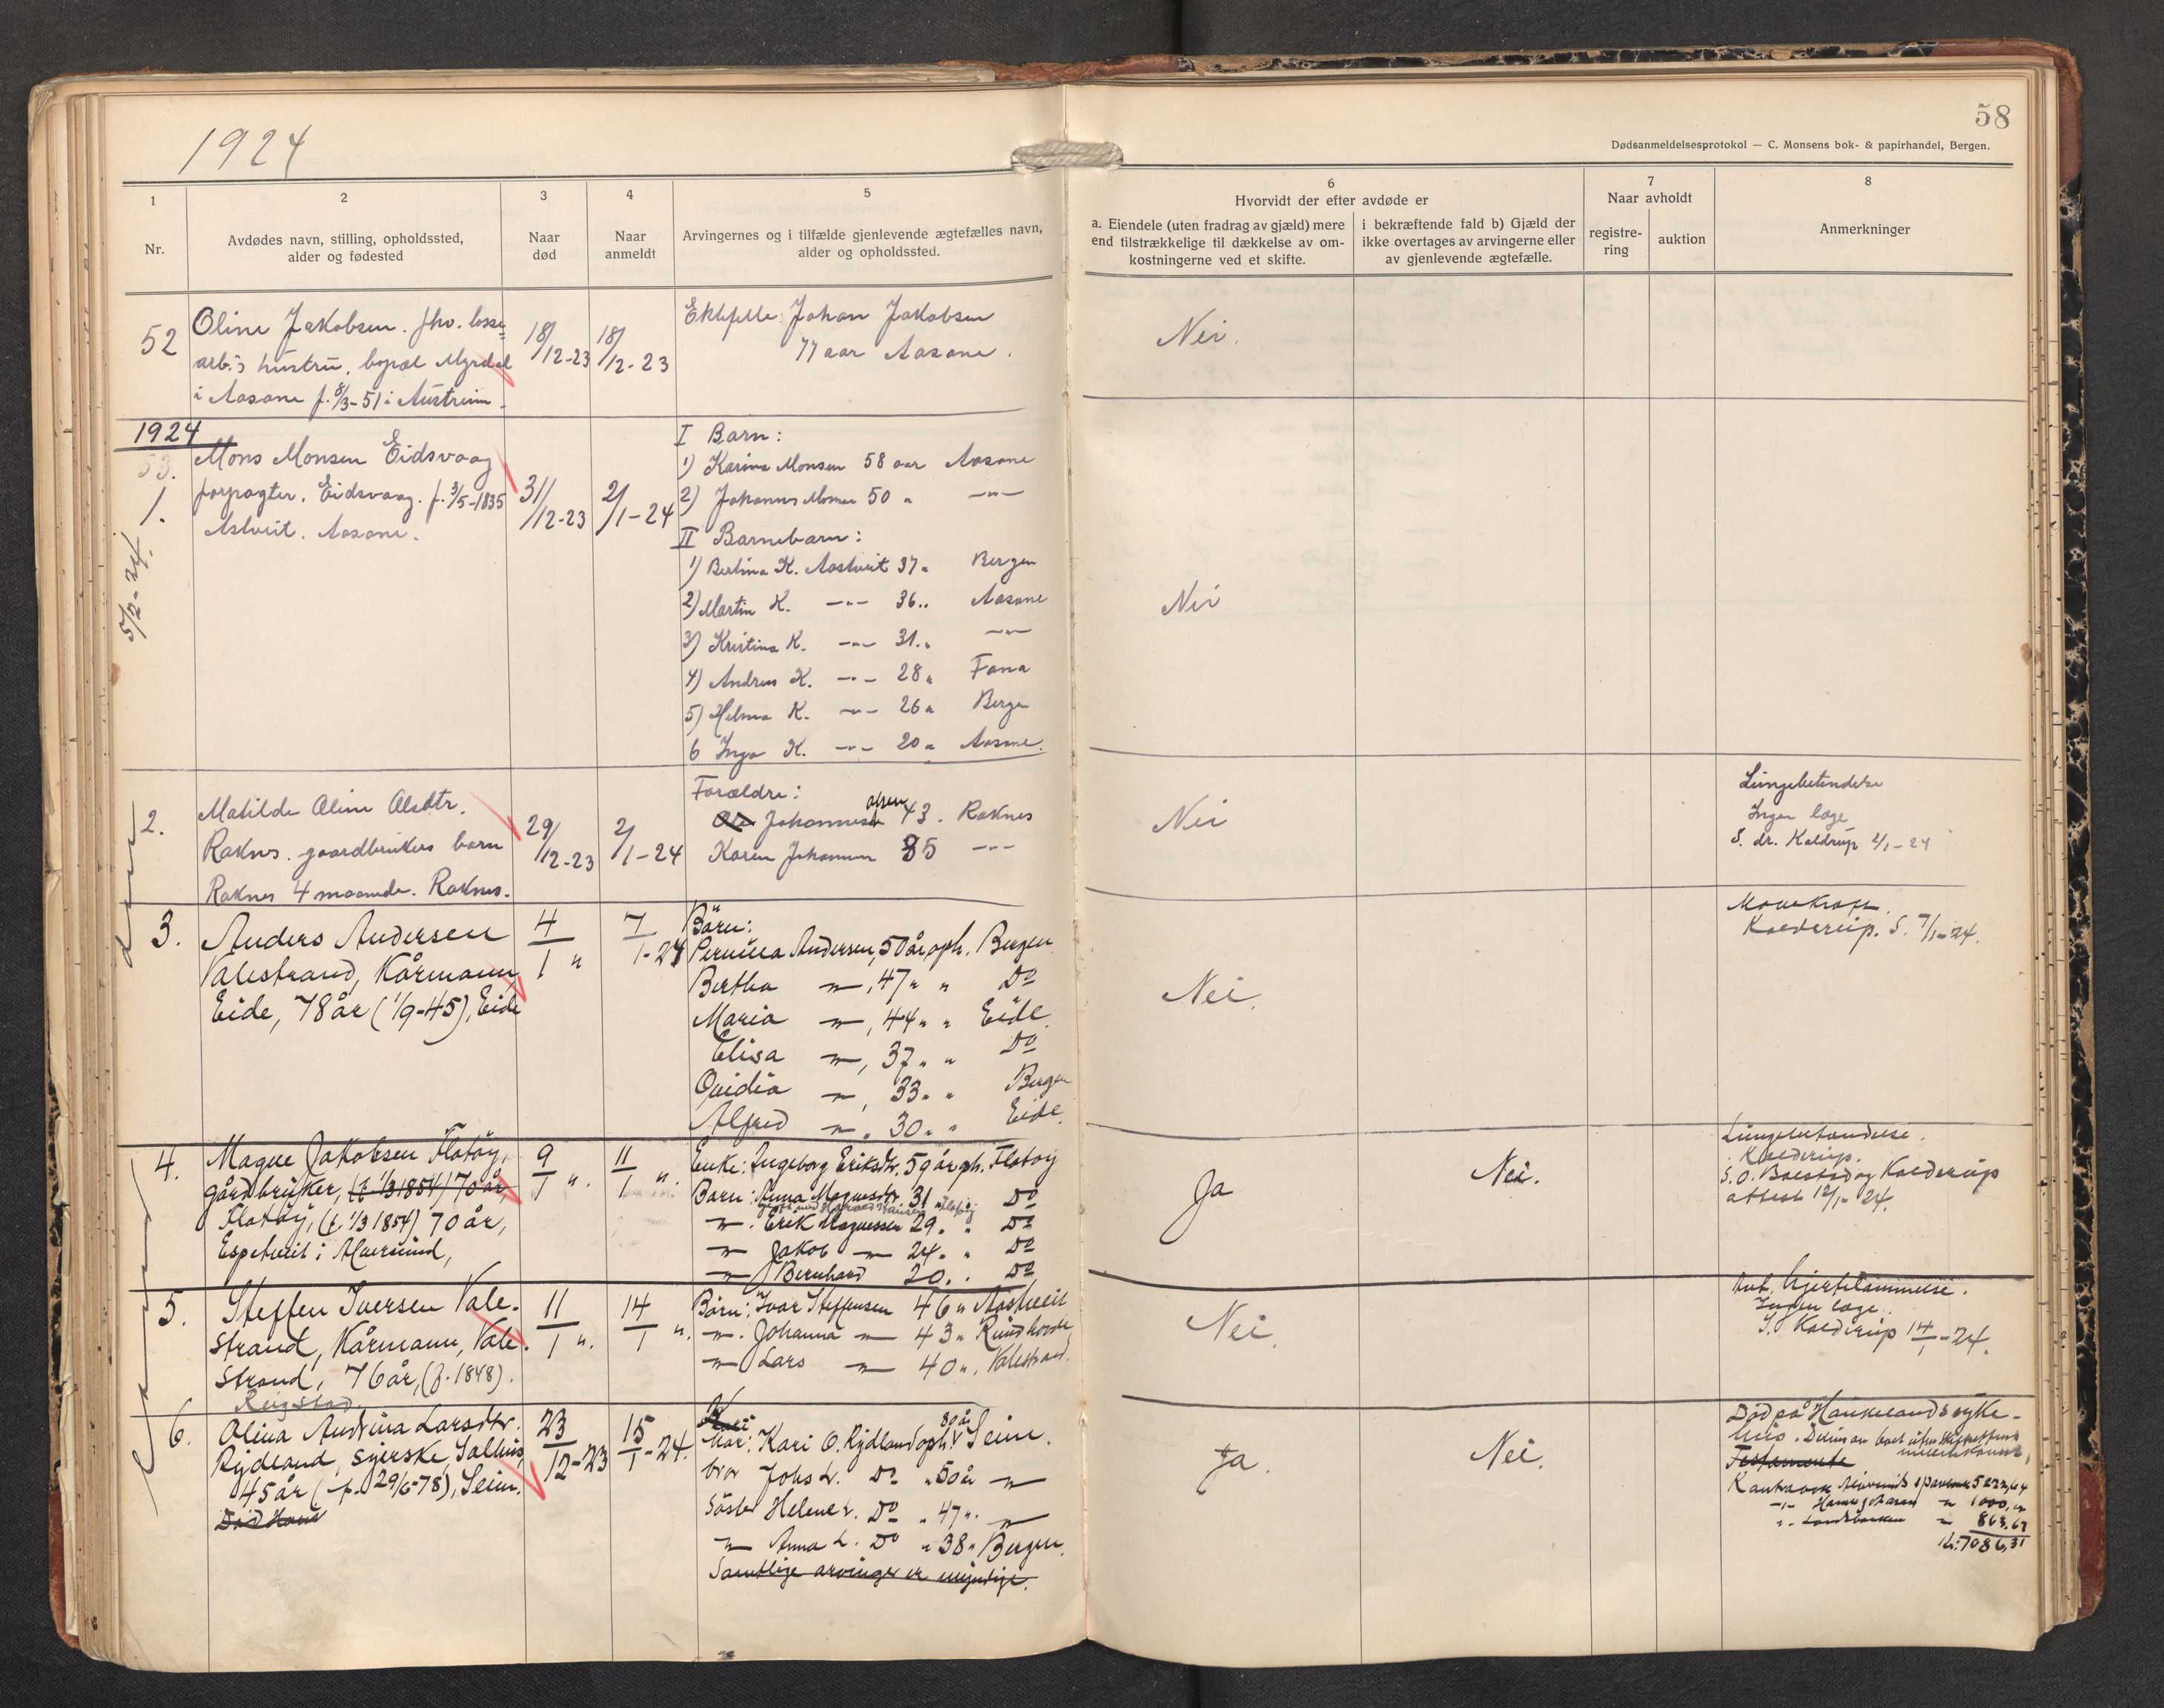 1924
58
Dødsanmeldelsesprotokol — C. Monsens bok- & papirhandel, Bergen.
1
Nr.
2
Avdødes navn, stilling, opholdssted,
alder og fødested
3
Naar
død
4
Naar
anmeldt
5
Arvingernes og i tilfælde gjenlevende ægtefælles navn,
alder og opholdssted.
6
Hvorvidt der efter avdøde er
a. Eiendele (uten fradrag av gjæld) mere
end tilstrækkelige til dækkelse av om-
kostningerne ved et skifte.
i bekræftende fald b) Gjæld der
ikke overtages av arvingerne eller
av gjenlevende ægtefælle.
7
Naar avholdt
registre-
ring
auktion
8
Anmerkninger
52
Oline Jakobsen. fhv. losse
arb.s hustru, bopæl Myrdal
i Aasane f. 8/3-51 i Austreim.
18/12-23
18/12-23
Ektefelle: Johan Jakobsen
77 aar Aasane.
Nei.
1924
53.
1.
5/2-24.
Mons Monsen Eidsvaag
forpagter. Eidsvaag. f. 3/5-1835
Astveit. Aasane.
31/12-23
2/1-24
I Barn:
1) Karina Monsen 58 aar Aasane
2) Johannes Monsen 50 " —"—
II Barnebarn:
1) Bertina K. Aastveit 37 " Bergen
2) Martin K. —"— 36 " Aasane
3) Kristina K. —"— 31 " —"—
4) Andreas K. —"— 28 " Fana
5) Helma K. —"— 26 " Bergen
6 Inga K. —"— 20 " Aasane.
Nei
2.
Matilde Oline Olsdtr.
Raknes. gaardbrukers barn
Raknes 4 maaneder. Raknes.
29/12-23
2/1-24
Forældre:
Ole Johannes Olsen 43. Raknes
Karen Johannesen 35 —"—
Nei
Lungebetendelse
Ingen læge
S. dr. Kaldrup 2/1-24
3.
Anders Andersen
Valestrand, Kårmann
Eide, 78 år (1/9-45), Eide
4/1 "
7/1-24
Börn:
Pernilla Andersen, 50 år, oph. Bergen
Bertha —"—, 47 " " Do
Maria —"—, 44 " " Eide.
Elisa —"—, 37 " " Do
Ovidia —"—, 33 " " Bergen
Alfred —"—, 30 " " Eide.
Nei.
Kalderup. S. 7/1-24.
4.
Magne Jakobsen Flatøy,
gårdbruker, (f. 1/3 1854) 70 år,
Flatøy, (f. 1/3 1854) 70 år,
Espetveit i Alversund,
9/1 ".
11/1 ".
Enke: Ingeborg Eriksdtr. 59 år oph. Flatøy
Barn: Anna Magnesdtr. 31 " Do
—"—. Erik Magnessen 29. " Do
—"— Jakob —"— 24. " Do
—"— Bernhard 20. . Do
Ja
Nei.
Lungebetændelse.
Kalderup.
S. O. Balstad og Kalderup
attest 12/1-24.
5.
Steffen Iversen Vale-
strand, Kårmann, Vale-
strand, 76 år, (f. 1848).
Reigstad.
11/1 ".
14/1 ".
Börn: Ivar Steffensen 46 " Aastveit
—"—. Johanna —"— 43 " Rundhovde
—"— Lars —"— 40 ", Valestrand.
Nei.
Ant. Hjertelammelse.
Ingen læge.
S. Kalderup 14/1-24.
6.
Olina Andrina Larsdtr.
Rydland, syerske, Salhus
45 år (f. 29/6-78), Seim.
Död Hau
23/12-23
15/1-24.
Kari
Mor: Kari O. Rydland oph. 80 år Seim.
bror Johs L. Do " 50 år —"—
Söster Helene L. Do " 47 ". —"—
—"— Anna L. Do " 38 " Bergen.
Samtlige arvinger er myndige.
Ja.
Nei.
Död på Haukelands syke-
hus.
Testamente
Kontrabok Alversunds Sparebank 5222,64
—"— 1000,00
"— Landsbanken " 863,67
kr. 7086,31